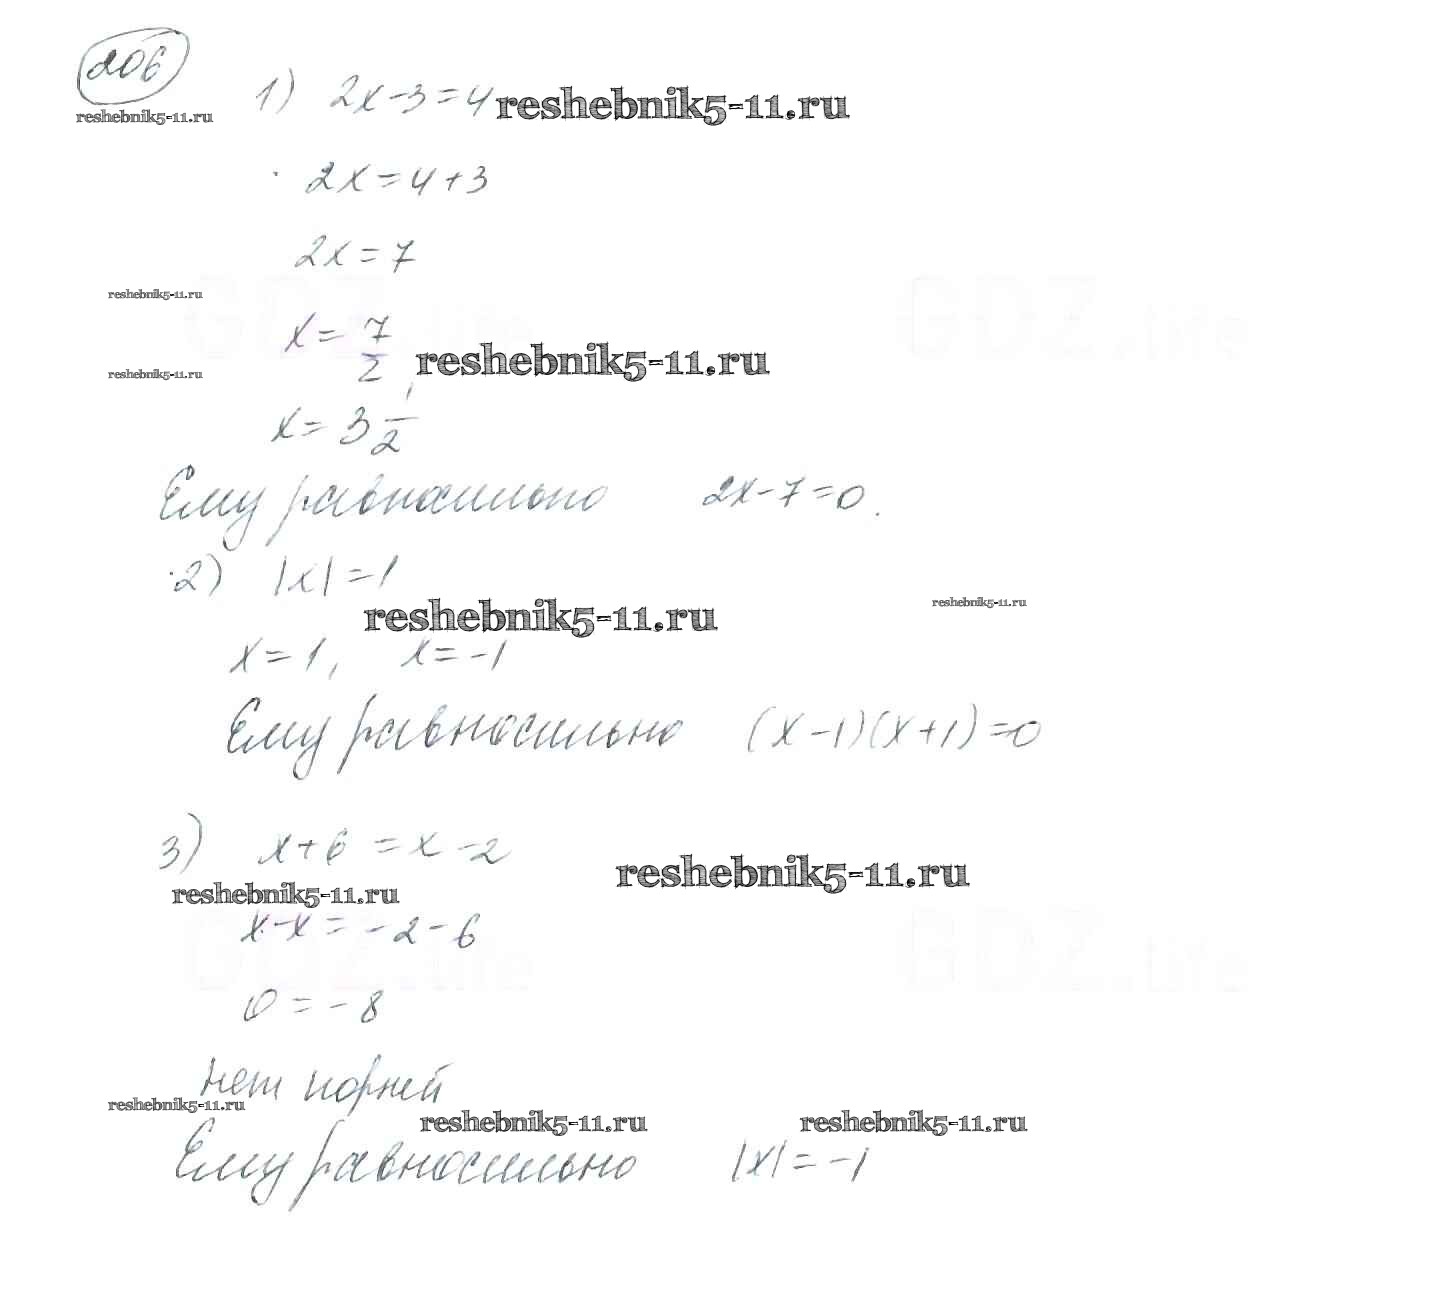 206
reshebnik5-11.ru
1) 2x-3=4 reshebnik5-11.ru
2x=4+3
2x=7
reshebnik5-11.ru
GDZ.life GDZ.life
x= 7/2 reshebnik5-11.ru
reshebnik5-11.ru
x= 3 1/2
Ему равносильно 2x-7=0.
2) |x|=1
reshebnik5-11.ru
reshebnik5-11.ru
x=1, x=-1
Ему равносильно (x-1)(x+1)=0
3) x+6=x-2
reshebnik5-11.ru
reshebnik5-11.ru
x-x=-2-6
GDZ.life GDZ.life
0=-8
нет корней
reshebnik5-11.ru
reshebnik5-11.ru reshebnik5-11.ru
Ему равносильно |x|=-1